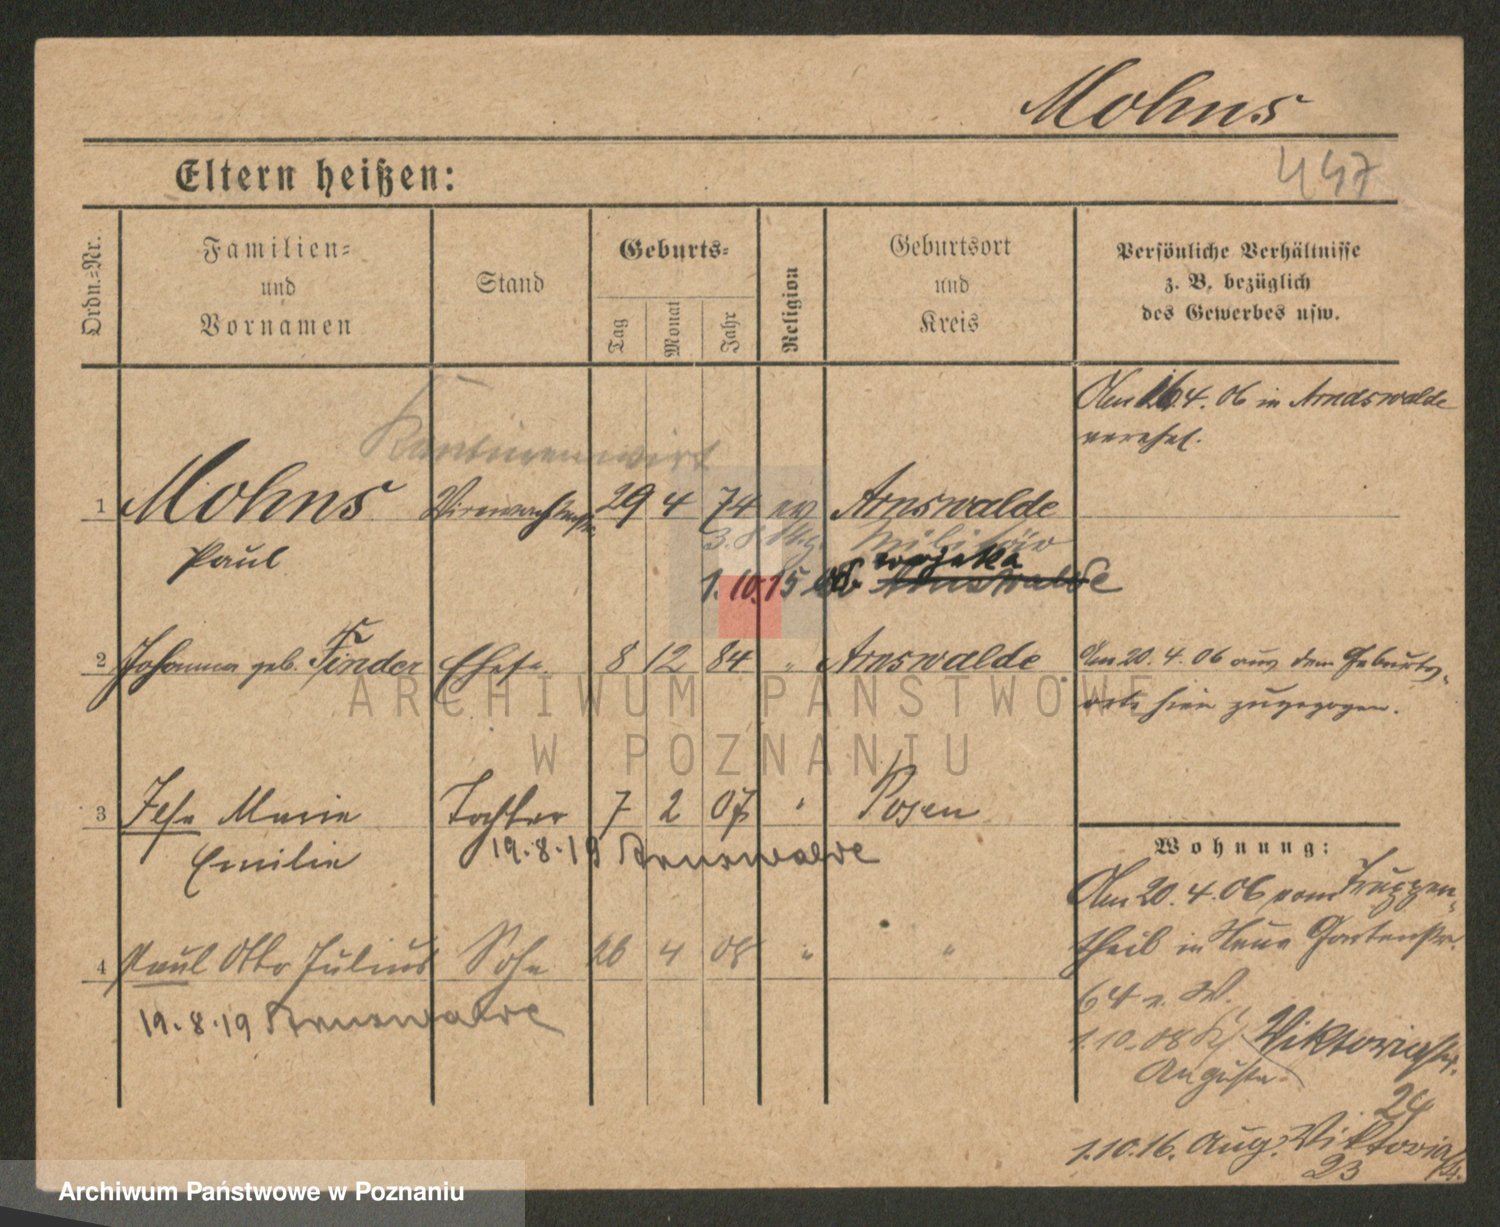 Mohns
447
Eltern heißen:
Ordn.-Nr.
Familien-
und
Vornamen
Stand
Geburts-
Tag
Monat
Jahr
Religion
Geburtsort
und
Kreis
Persönliche Verhältnisse
z. B. bezüglich
des Gewerbes usw.
Am 16.4.06 in Arndswalde
verehel.
Kantinenwirt
1 Mohns 29 4 74 ev Arnswalde
Paul
Militär
1.10.15
2 Johanna geb. Finder Ehefr. 8 12 84 " Arnswalde
Am 20.4.06 aus dem Geburts-
orte hier zugezogen.
ARCHIWUM PAŃSTWOWE
W POZNANIU
3 Marie Tochter 7 2 07 " Posen
Emilie
19.8.19 Arnswalde
4 Paul Otto Julius Sohn 4 08 " "
19.8.19 Arnswalde
Wohnung:
Am 20.4.06 vom Truppen-
theil in Neue Gartenstr.
64 v. W.
1.10.08 Viktoriastr.
Augusta
24
1.10.16. Aug. Viktoria
23
Archiwum Państwowe w Poznaniu